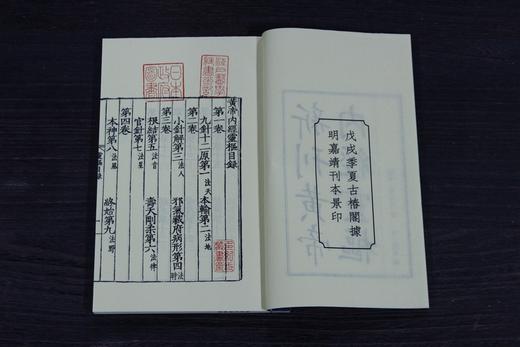 戊戌季夏古椿閣據
明嘉靖刊本景印
黃帝內經靈樞目錄
第一卷
九針十二原第一法天 本輸第二法地
第二卷
小針解第三法人 邪氣藏府病形第四法時
第三卷
根結第五法音 壽夭剛柔第六法律
官針第七法星
第四卷
本神第八法風 終始第九法野
日本
政府
圖書